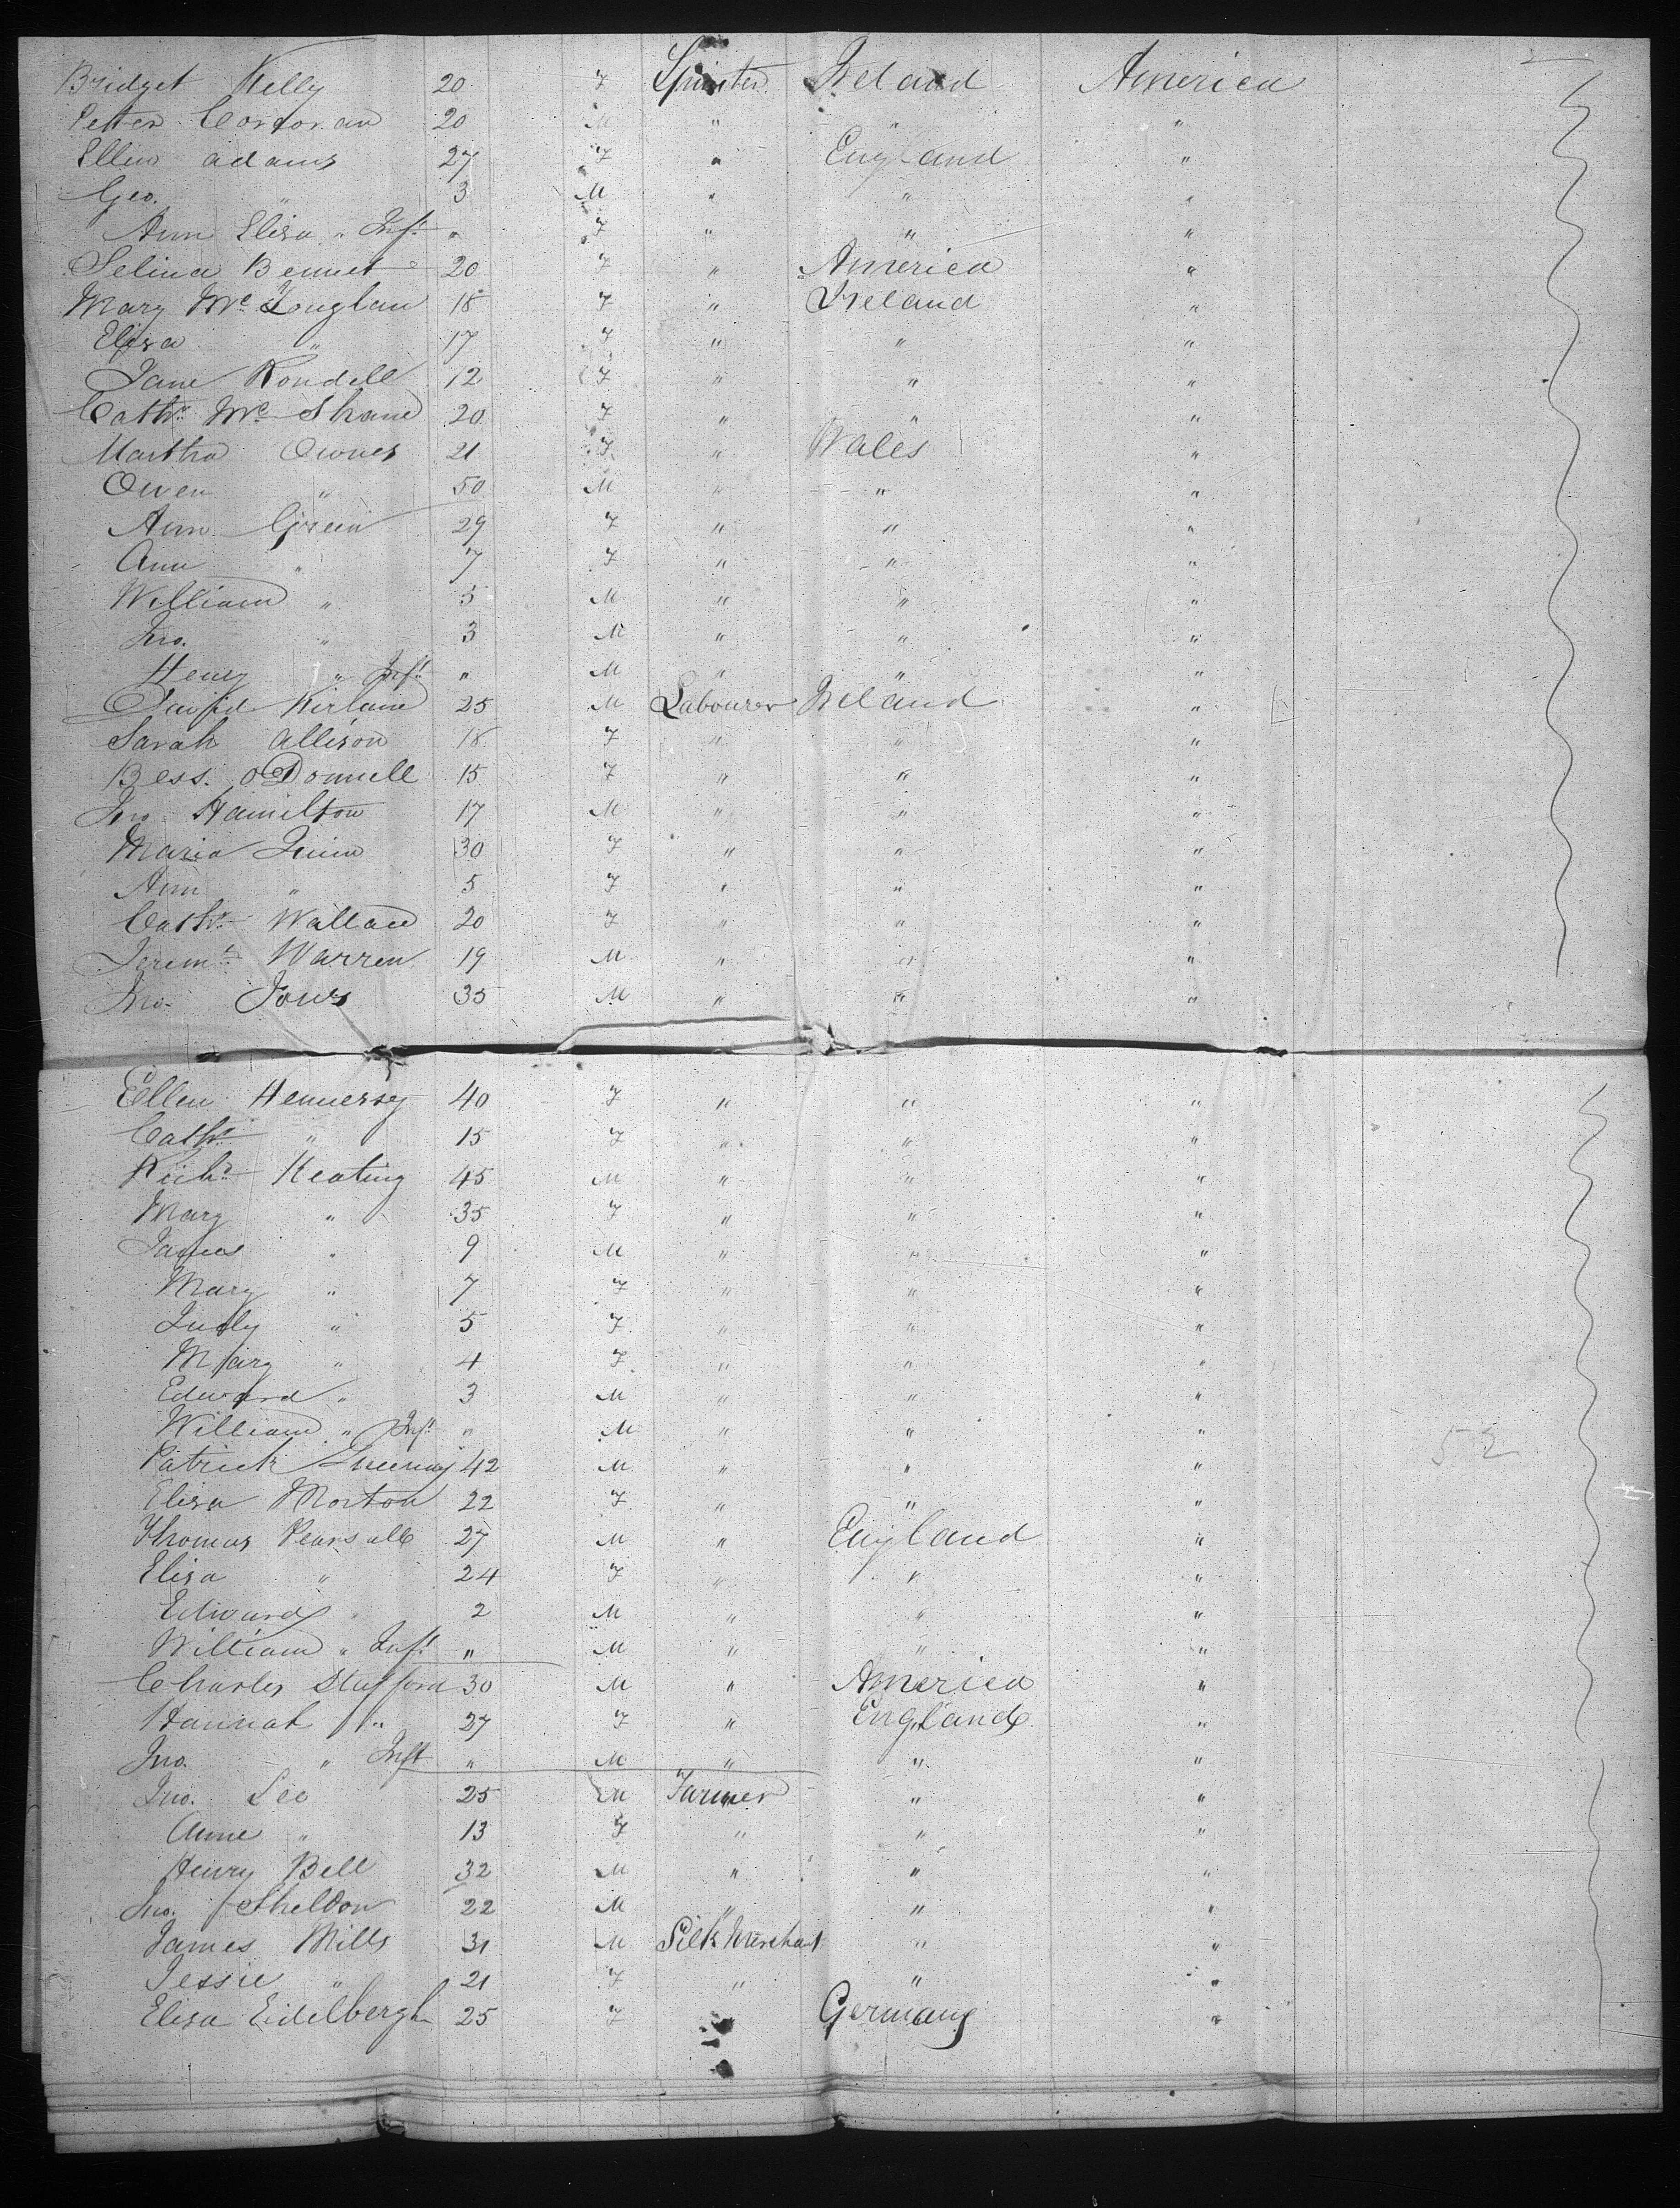 2
Bridget Kelly 20 F Spinster Ireland America
Petter Corcoran 20 M " " "
Ellin adams 27 F " England "
Geo. " 3 M " " "
Ann Eliza " Inft " F " " "
Selina Bennet 20 F " America "
Mary Mc 18 F " Ireland "
Eliza " 17 F " " "
Jane Rondell 12 F " " "
Cathr Mc Shane 20 F " " "
Martha Owens 21 F " Wales "
Owen " 50 M " " "
Ann Green 29 F " " "
Ann " 7 F " " "
William " 5 M " " "
Jno. " 3 M " " "
Henry " Inft " M " " "
David Kirlane 25 M Labourer Ireland "
Sarah Allison 18 F " " "
Bess. oDonnell 15 F " " "
Jno Hamilton 17 M " " "
Maria Quinn 30 F " " "
Ann " 5 F " " "
Cathr Wallace 20 F " " "
Jeremh Warren 19 M " " "
Jno. Jones 35 M " " "
Ellen Hennersey 40 F " " "
Cathr " 15 F " " "
Richd Keating 45 M " " "
Mary " 35 F " " "
James " 9 M " " "
Mary " 7 F " " "
Judy " 5 F " " "
Mary " 4 F " " "
Edward " 3 M " " "
William " Inft " M " " "
52
Patrick 42 M " " "
Eliza Morton 22 F " " "
Thomas Pearsall 27 M " England "
Eliza " 24 F " " "
Edward " 2 M " " "
William " Inft " M " " "
Charles Stafford 30 M " America "
Hannah " 27 F " England "
Jno. " Inft " M " " "
Jno. Lee 25 M Farmer " "
Anne " 13 F " " "
Henry Bell 32 M " " "
Jno. Sheldon 22 M " " "
James Mills 31 M Silk Merchant " "
Jessie " 21 F " " "
Elisa Eidelbergh 25 F " Germany "